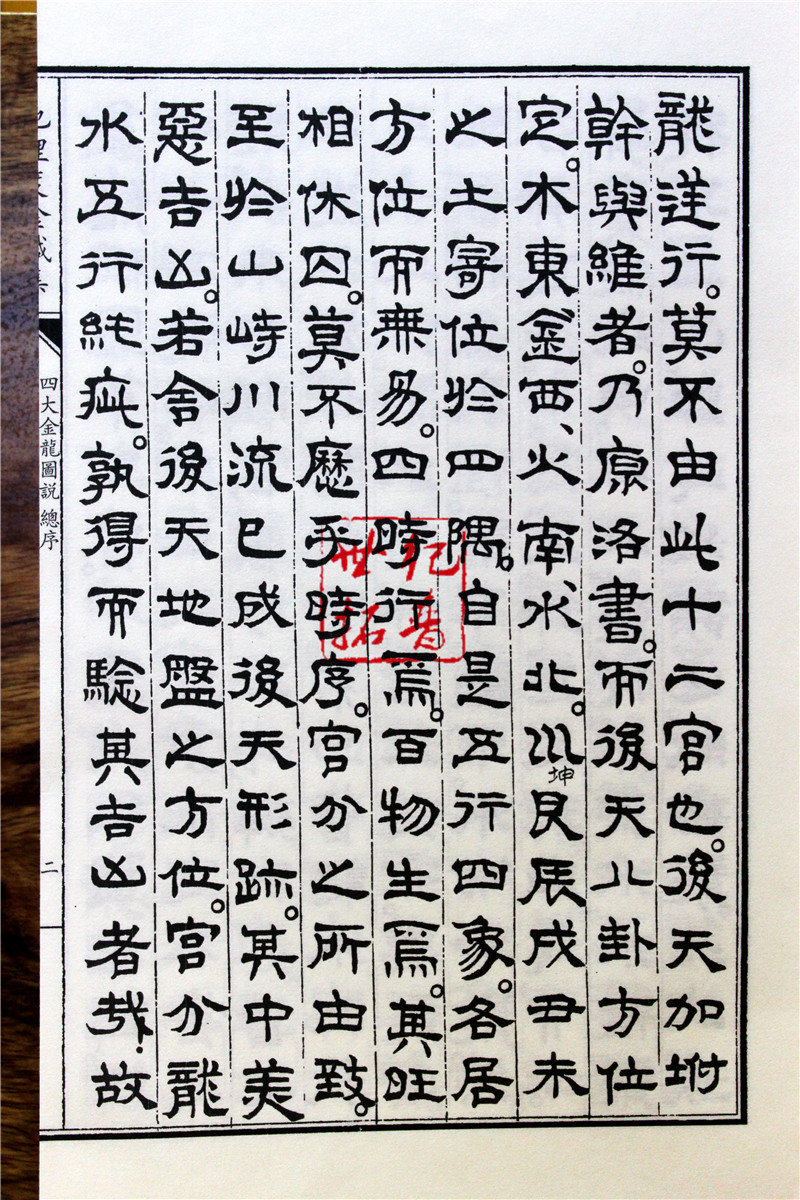 龍逆行。莫不由此十二宮也。後天加坿
幹與維者。乃原洛書。而後天八卦方位
定。木東金西、火南、水北。巛坤艮辰戌丑未
之土寄位於四隅。自是五行四象。各居
方位而無易。四時行焉。百物生焉。其旺
相休囚。莫不歷乎時序。宮分之所由致。
至於山峙川流已成後天形跡。其中美
惡吉凶。若舍後天地盤之方位。宮分龍
水五行純疵。孰得而騐其吉凶者哉.故
四大金龍圖説 總序
二
世纪
拓普